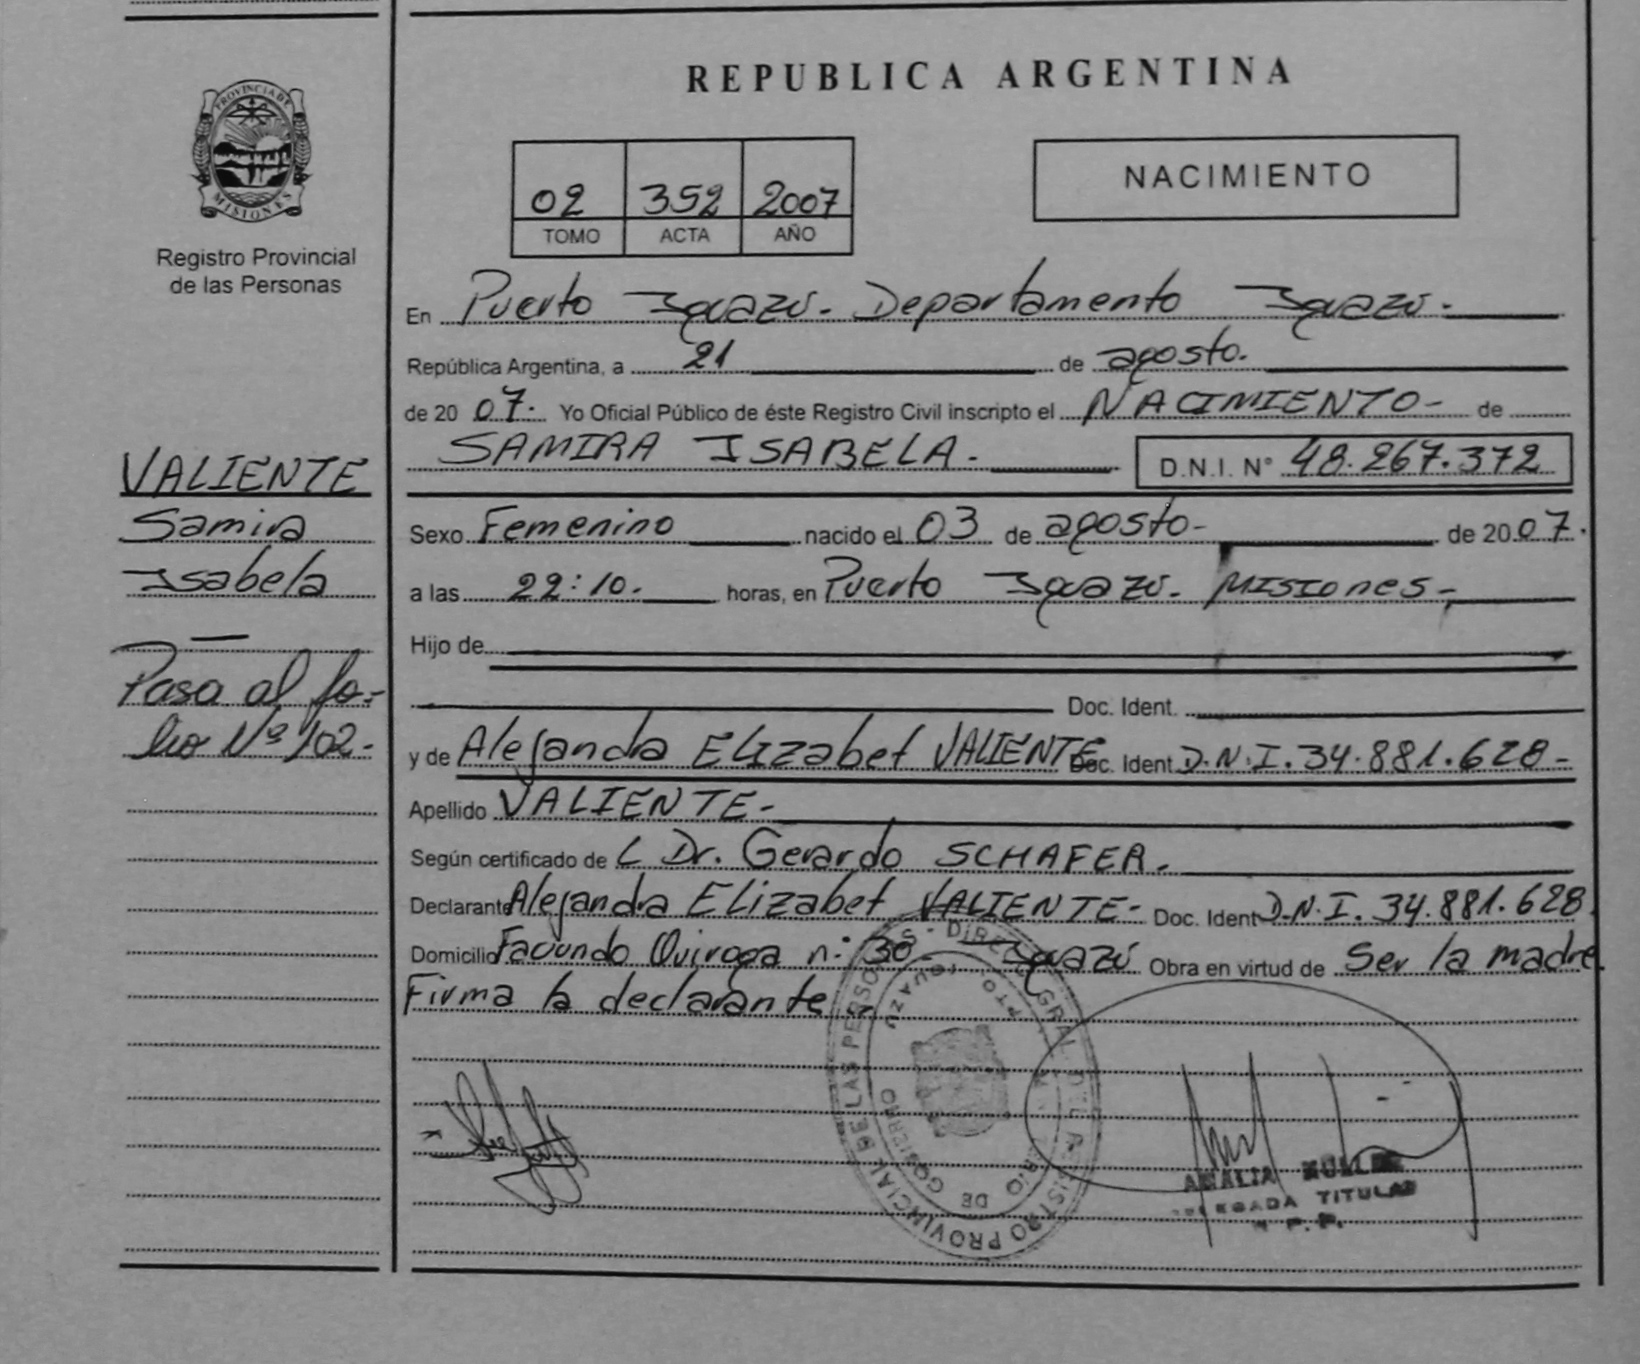 REPUBLICA ARGENTINA
PROVINCIA DE
MISIONES
Registro Provincial
de las Personas
02 352 2007
TOMO ACTA AÑO
NACIMIENTO
En Puerto Iguazú. Departamento Iguazú.
República Argentina, a 21 de agosto.
de 20 07. Yo Oficial Público de éste Registro Civil inscripto el NACIMIENTO- de
SAMIRA ISABELA. D.N.I. N° 48.267.372
VALIENTE
Samira
Isabela
Pasa al fo-
lio Nº 102-
Sexo Femenino nacido el 03 de agosto- de 20 07.
a las 22:10. horas, en Puerto Iguazú. Misiones-
Hijo de
Doc. Ident.
y de Alejandra Elizabet VALIENTE Doc. Ident D.N.I. 34.881.628-
Apellido VALIENTE-
Según certificado de L Dr. Gerardo SCHAFER.
Declarante Alejandra Elizabet VALIENTE- Doc. Ident D.N.I. 34.881.628
Domicilio Facundo Quiroga n: 30- Iguazú Obra en virtud de Ser la madre
Firma la declarante
REGISTRO PROVINCIAL DE LAS PERSONAS - DIREC GRAL DEL
DE GOBIERNO
IGUAZU
AMALIA MULLER
DELEGADA TITULAR
R. P. P.